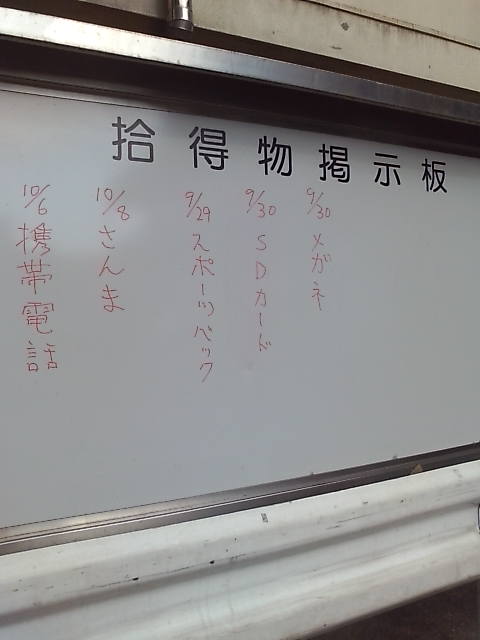 拾得物掲示板
9/30 メガネ
9/30 SDカード
9/29 スポーツバック
10/8 さんま
10/6 携帯電話